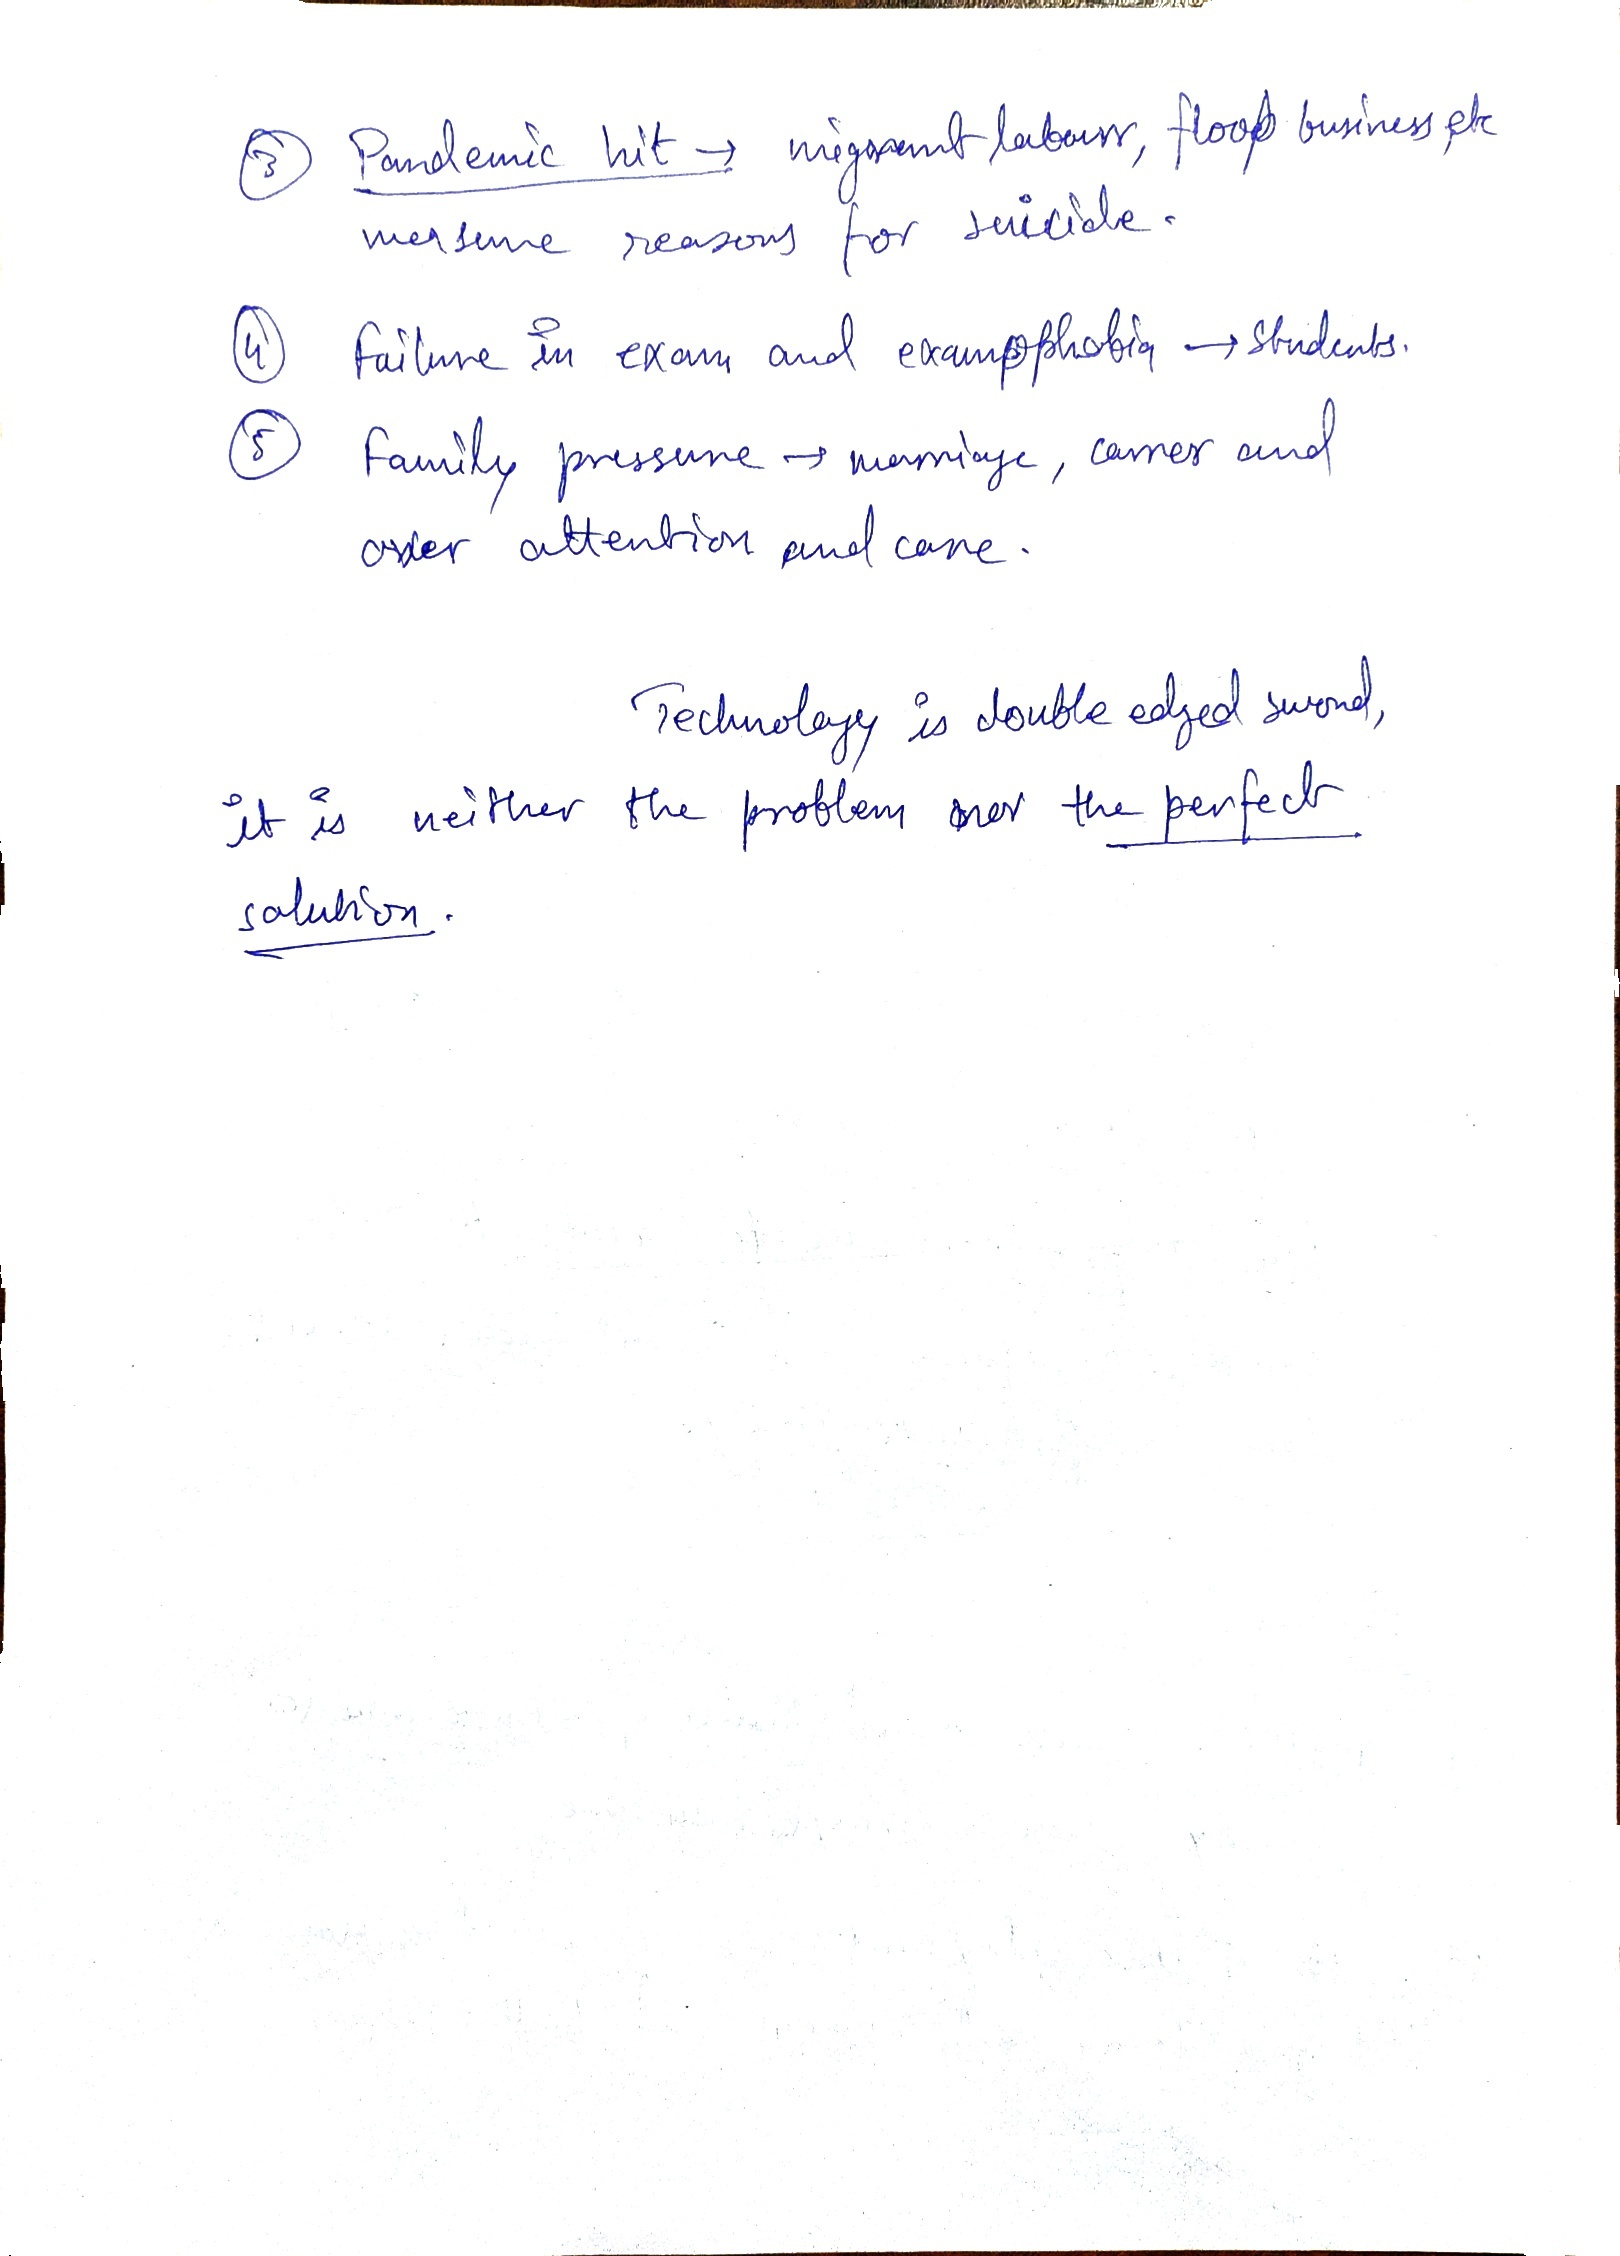 ③ Pandemic hit → migrant labour, floop business etc
measure reasons for suicide.
④ Failure in exam and examophobia → Students.
⑤ Family pressure → marriage, carrer and
over attention and care.
Technology is double edged sword,
it is neither the problem nor the perfect
solution.